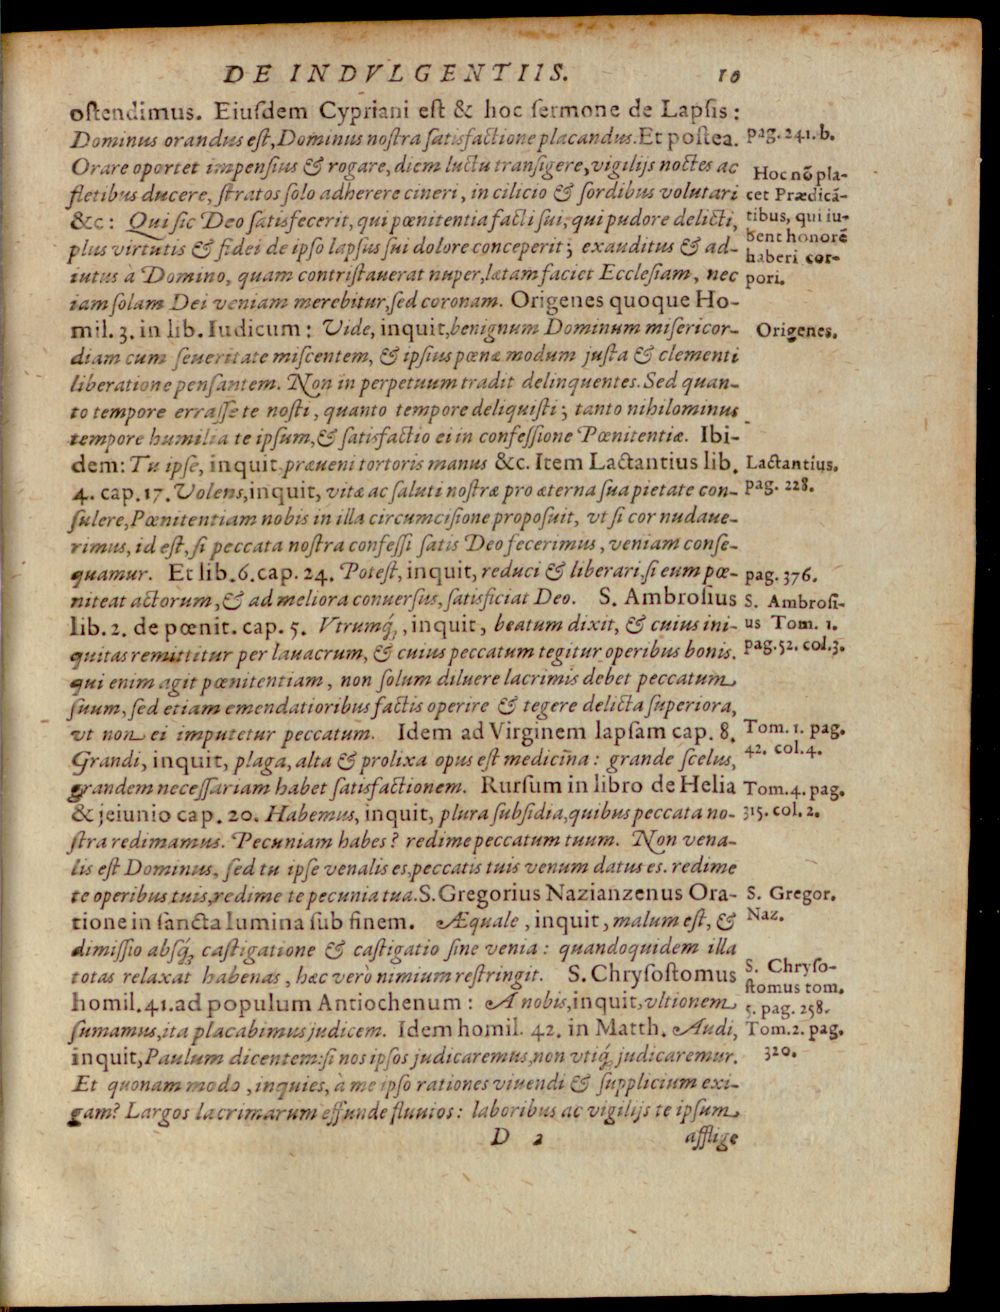 DE INDVLGENTIIS. 10
ostendimus. Eiusdem Cypriani est & hoc sermone de Lapsis:
Dominus orandus est, Dominus nostra satisfactione placandus. Et postea.
Orare oportet impensius & rogare, diem luctu transigere, vigilijs noctes ac
fletibus ducere, stratos solo adherere cineri, in cilicio & sordibus volutari
&c: Qui sic Deo satisfecerit, qui pœnitentia facti sui, qui pudore delicti,
plus virtutis & fidei de ipso lapsus sui dolore conceperit; exauditus & ad-
iutus à Domino, quam contristauerat nuper, lætam faciet Ecclesiam, nec
iam solam Dei veniam merebitur, sed coronam. Origenes quoque Ho-
mil. 3. in lib. Iudicum: Vide, inquit, benignum Dominum misericor-
diam cum seueritate miscentem, & ipsius pœnæ modum justa & clementi
liberatione pensantem. Non in perpetuum tradit delinquentes. Sed quan-
to tempore errasse te nosti, quanto tempore deliquisti; tanto nihilominus
tempore humilia te ipsum, & satisfactio ei in confessione Pœnitentiæ. Ibi-
dem: Tu ipse, inquit, præueni tortoris manus &c. Item Lactantius lib.
4. cap. 17. Volens, inquit, vitæ ac saluti nostræ pro æterna sua pietate con-
sulere, Pœnitentiam nobis in illa circumcisione proposuit, vt si cor nudaue-
rimus, id est, si peccata nostra confessi satis Deo fecerimus, veniam conse-
quamur. Et lib. 6. cap. 24. Potest, inquit, reduci & liberari, si eum pœ-
niteat actorum, & ad meliora conuersus, satisficiat Deo. S. Ambrosius
lib. 2. de pœnit. cap. 5. Vtrumq́, inquit, beatum dixit, & cuius ini-
quitas remittitur per lauacrum, & cuius peccatum tegitur operibus bonis.
qui enim agit pœnitentiam, non solum diluere lacrimis debet peccatum
suum, sed etiam emendatioribus factis operire & tegere delicta superiora,
vt non ei imputetur peccatum. Idem ad Virginem lapsam cap. 8.
Grandi, inquit, plaga, alta & prolixa opus est medicina: grande scelus,
grandem necessariam habet satisfactionem. Rursum in libro de Helia
& jeiunio cap. 20. Habemus, inquit, plura subsidia, quibus peccata no-
stra redimamus. Pecuniam habes? redime peccatum tuum. Non vena-
lis est Dominus, sed tu ipse venalis es, peccatis tuis venum datus es. redime
te operibus tuis, redime te pecunia tua. S. Gregorius Nazianzenus Ora-
tione in sancta lumina sub finem. Æquale, inquit, malum est, &
dimissio absq́ castigatione & castigatio sine venia: quandoquidem illa
totas relaxat habenas, hæc verò nimium restringit. S. Chrysostomus
homil. 41. ad populum Antiochenum: A nobis, inquit, vltionem
sumamus, ita placabimus judicem. Idem homil. 42. in Matth. Audi,
inquit, Paulum dicentem: si nos ipsos judicaremus, non vtiq́ judicaremur.
Et quonam modo, inquies, à me ipso rationes viuendi & supplicium exi-
gam? Largos lacrimarum effunde fluuios: laboribus ac vigilijs te ipsum
D 2 afflige
pag. 241. b.
Hoc nō pla-
cet Prædicā-
tibus, qui iu-
bent honorē
haberi cor-
pori.
Origenes.
Lactantius.
pag. 228.
pag. 376.
S. Ambrosi-
us Tom. 1.
pag. 52. col. 3.
Tom. 1. pag.
42. col. 4.
Tom. 4. pag.
315. col. 2.
S. Gregor.
Naz.
S. Chryso-
stomus tom.
5. pag. 258.
Tom. 2. pag.
320.